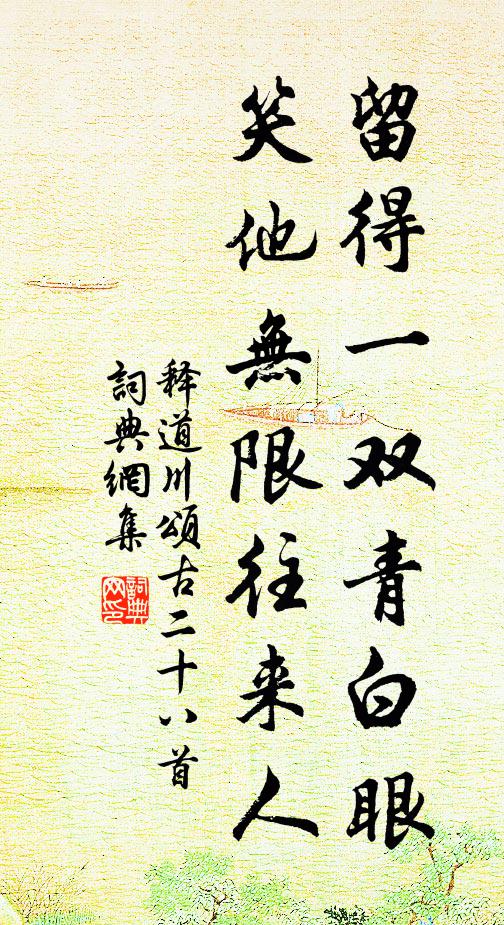 留得一双青白眼
笑他無限往来人
释道川頌古二十八首
詞典網集
詞典網印